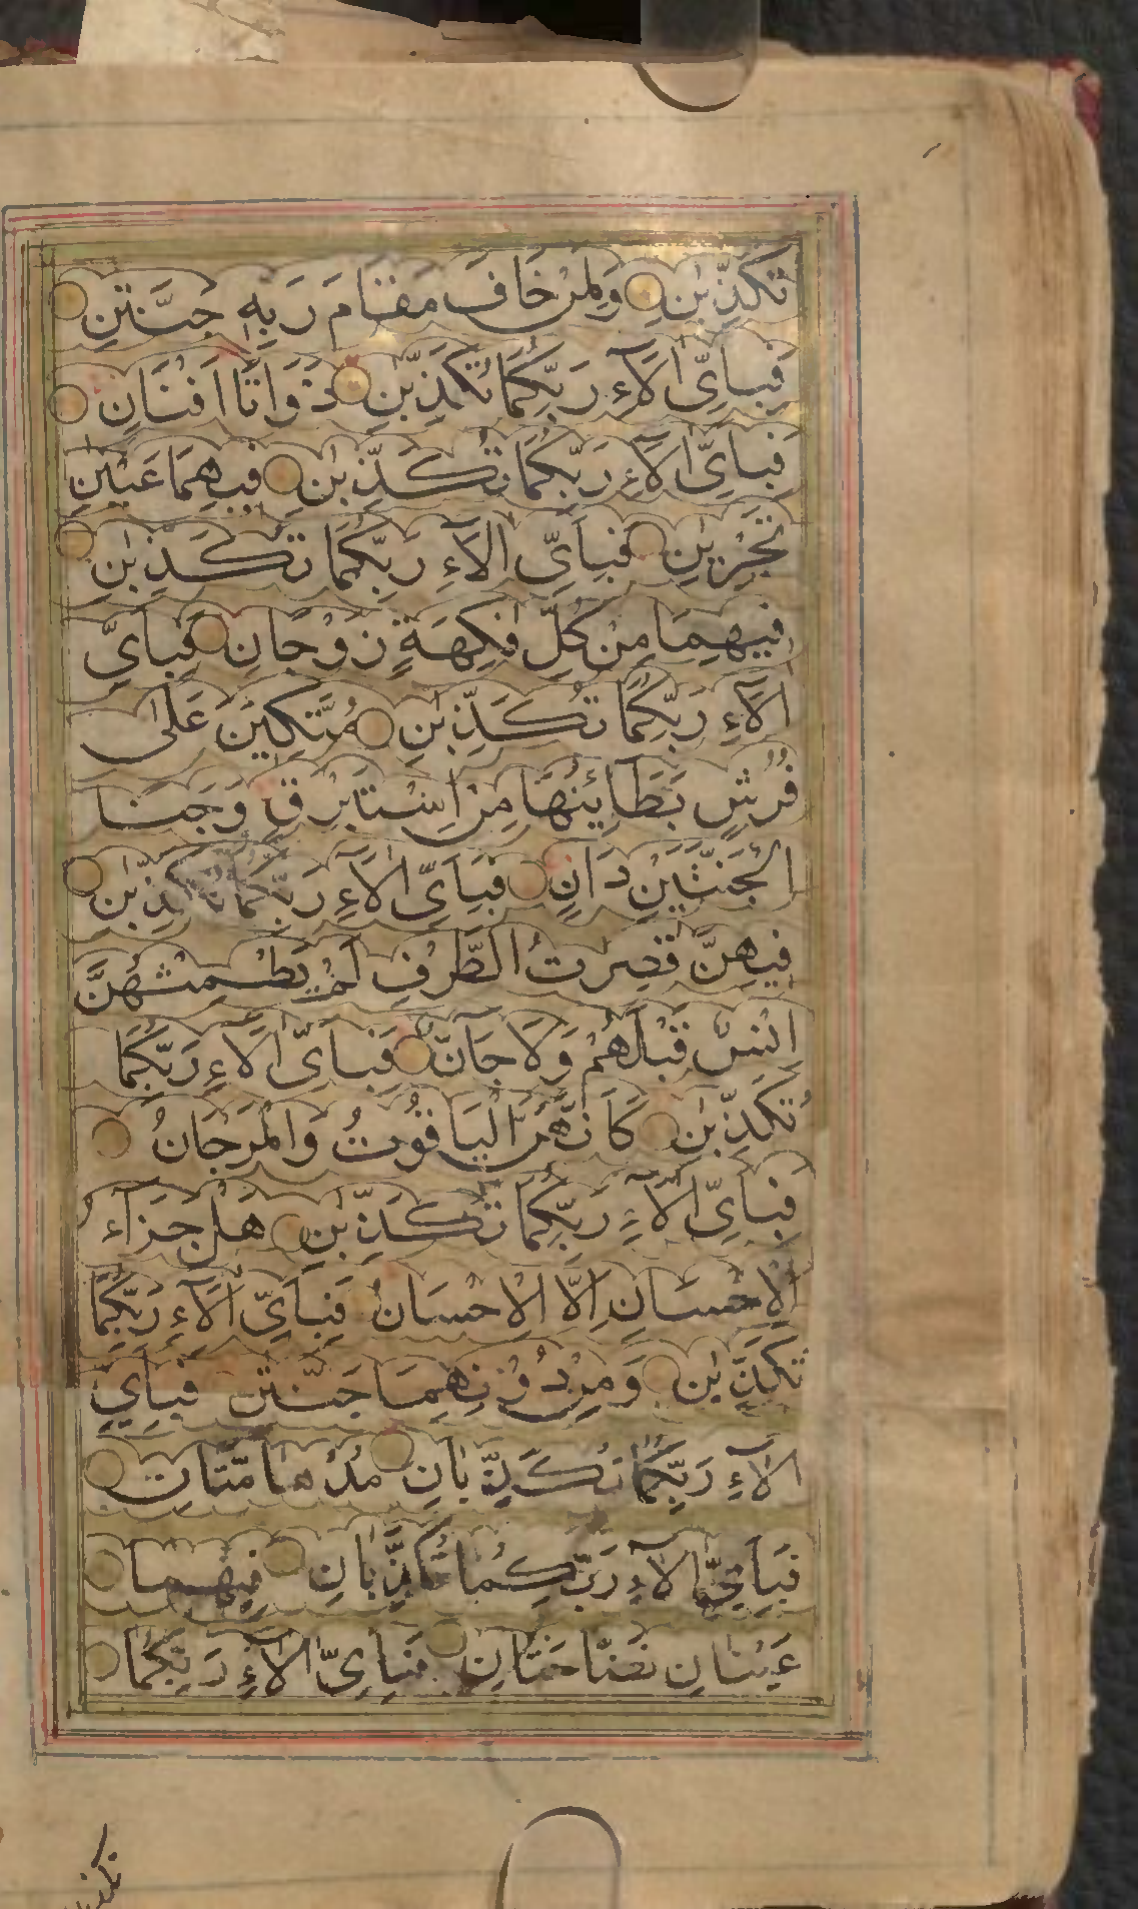 تُكَذِّبٰنِ ۝ وَلِمَنْ خَافَ مَقَامَ رَبِّهٖ جَنَّتٰنِ ۝
فَبِاَيِّ اٰلَآءِ رَبِّكُمَا تُكَذِّبٰنِ ۝ ذَوَاتَا اَفْنَانٍ ۝
فَبِاَيِّ اٰلَآءِ رَبِّكُمَا تُكَذِّبٰنِ ۝ فِيهِمَا عَيْنٰنِ
تَجْرِيٰنِ ۝ فَبِاَيِّ اٰلَآءِ رَبِّكُمَا تُكَذِّبٰنِ ۝
فِيهِمَا مِنْ كُلِّ فٰكِهَةٍ زَوْجَانِ ۝ فَبِاَيِّ
اٰلَآءِ رَبِّكُمَا تُكَذِّبٰنِ ۝ مُتَّكِئِينَ عَلٰى
فُرُشٍ بَطَآئِنُهَا مِنْ اِسْتَبْرَقٍ وَجَنَا
الْجَنَّتَيْنِ دَانٍ ۝ فَبِاَيِّ اٰلَآءِ رَبِّكُمَا تُكَذِّبٰنِ ۝
فِيهِنَّ قٰصِرٰتُ الطَّرْفِ لَمْ يَطْمِثْهُنَّ
اِنْسٌ قَبْلَهُمْ وَلَا جَآنٌّ ۝ فَبِاَيِّ اٰلَآءِ رَبِّكُمَا
تُكَذِّبٰنِ ۝ كَاَنَّهُنَّ الْيَاقُوتُ وَالْمَرْجَانُ ۝
فَبِاَيِّ اٰلَآءِ رَبِّكُمَا تُكَذِّبٰنِ ۝ هَلْ جَزَآءُ
الْاِحْسَانِ اِلَّا الْاِحْسَانُ فَبِاَيِّ اٰلَآءِ رَبِّكُمَا
تُكَذِّبٰنِ ۝ وَمِنْ دُوْنِهِمَا جَنَّتٰنِ فَبِاَيِّ
اٰلَآءِ رَبِّكُمَا تُكَذِّبَانِ ۝ مُدْهَامَّتَانِ ۝
فَبِاَيِّ اٰلَآءِ رَبِّكُمَا تُكَذِّبَانِ ۝ فِيهِمَا ۝
عَيْنَانِ نَضَّاخَتَانِ ۝ فَبِاَيِّ اٰلَآءِ رَبِّكُمَا ۝